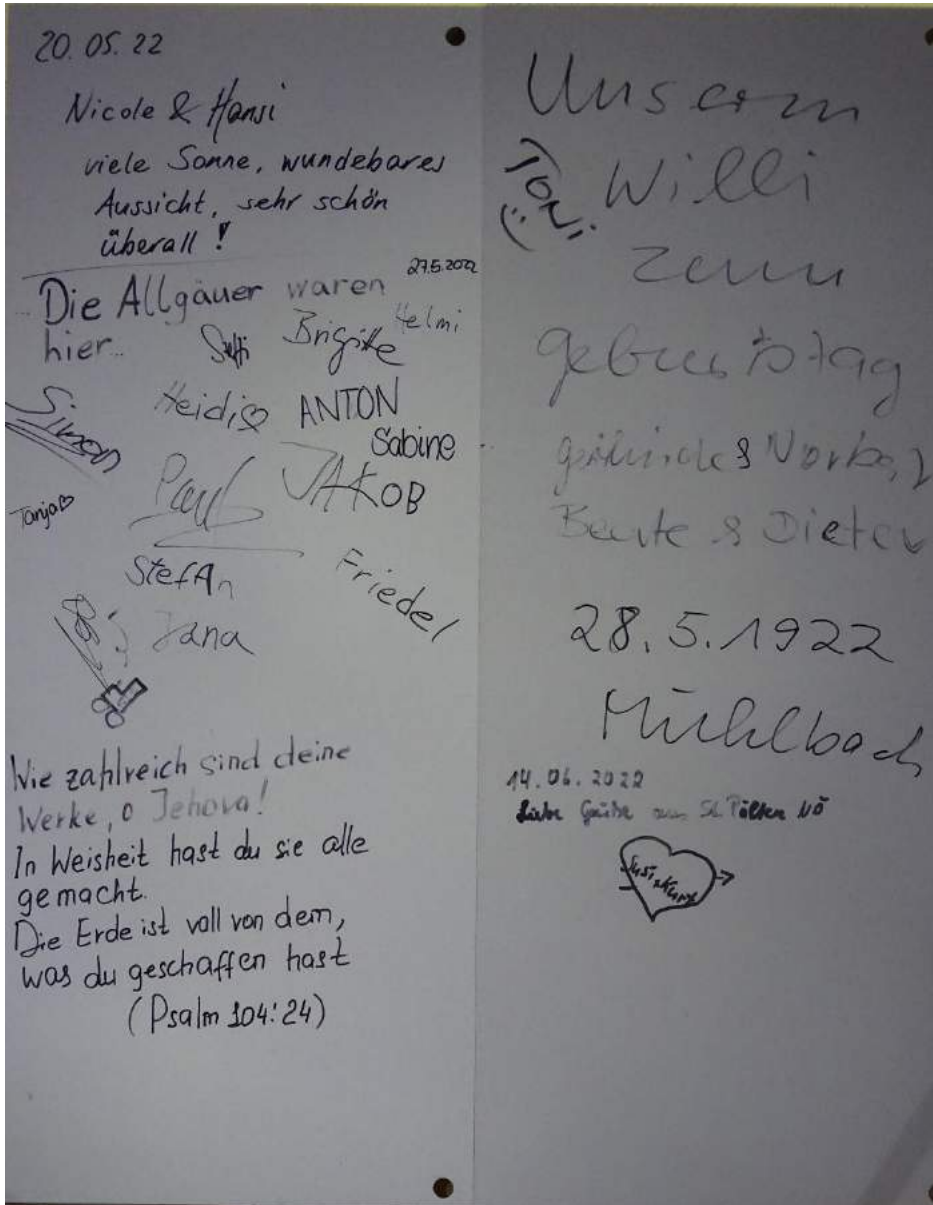 20.05.22
Nicole & Hansi
viele Sonne, wundebares
Aussicht, sehr schön
überall!
27.5.2022
Die Allgäuer waren
hier...
Brigitte
Helmi
Simon
Heidi
ANTON
Sabine
Paul
JAKOB
Tanja
StefAn
Friedel
Jana
Wie zahlreich sind deine
Werke, o Jehova!
In Weisheit hast du sie alle
gemacht.
Die Erde ist voll von dem,
was du geschaffen hast
(Psalm 104:24)
Unserm
TONi
Willi
zum
geburtstag
&
Beate & Dieter
28.5.1922
Mühlbach
14.06.2022
Liebe Grüße aus St. Pölten NÖ